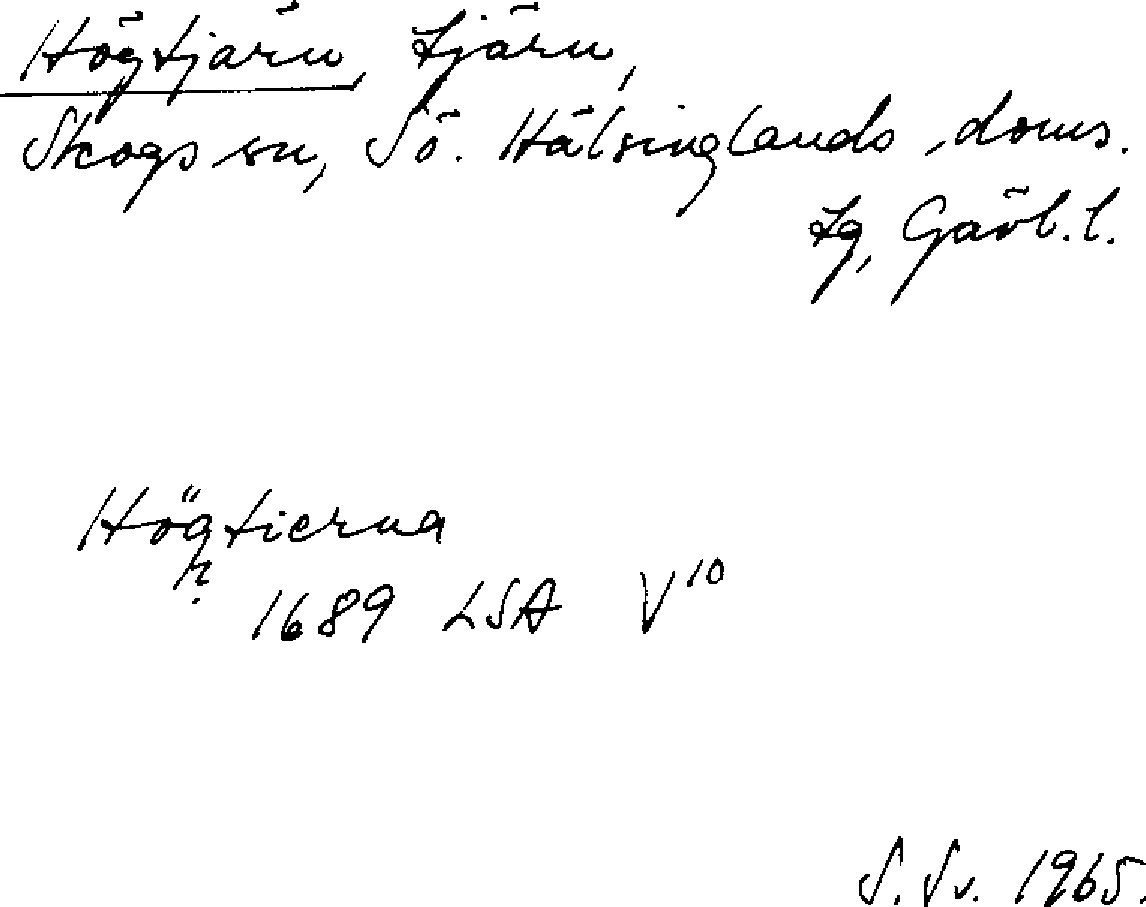 Högtjärn, tjärn,
Skogs sn, Sö. Hälsinglands doms.
tg, Gävl. l.
Högtierna
?
1689 LSA V10
S. Sv. 1965.